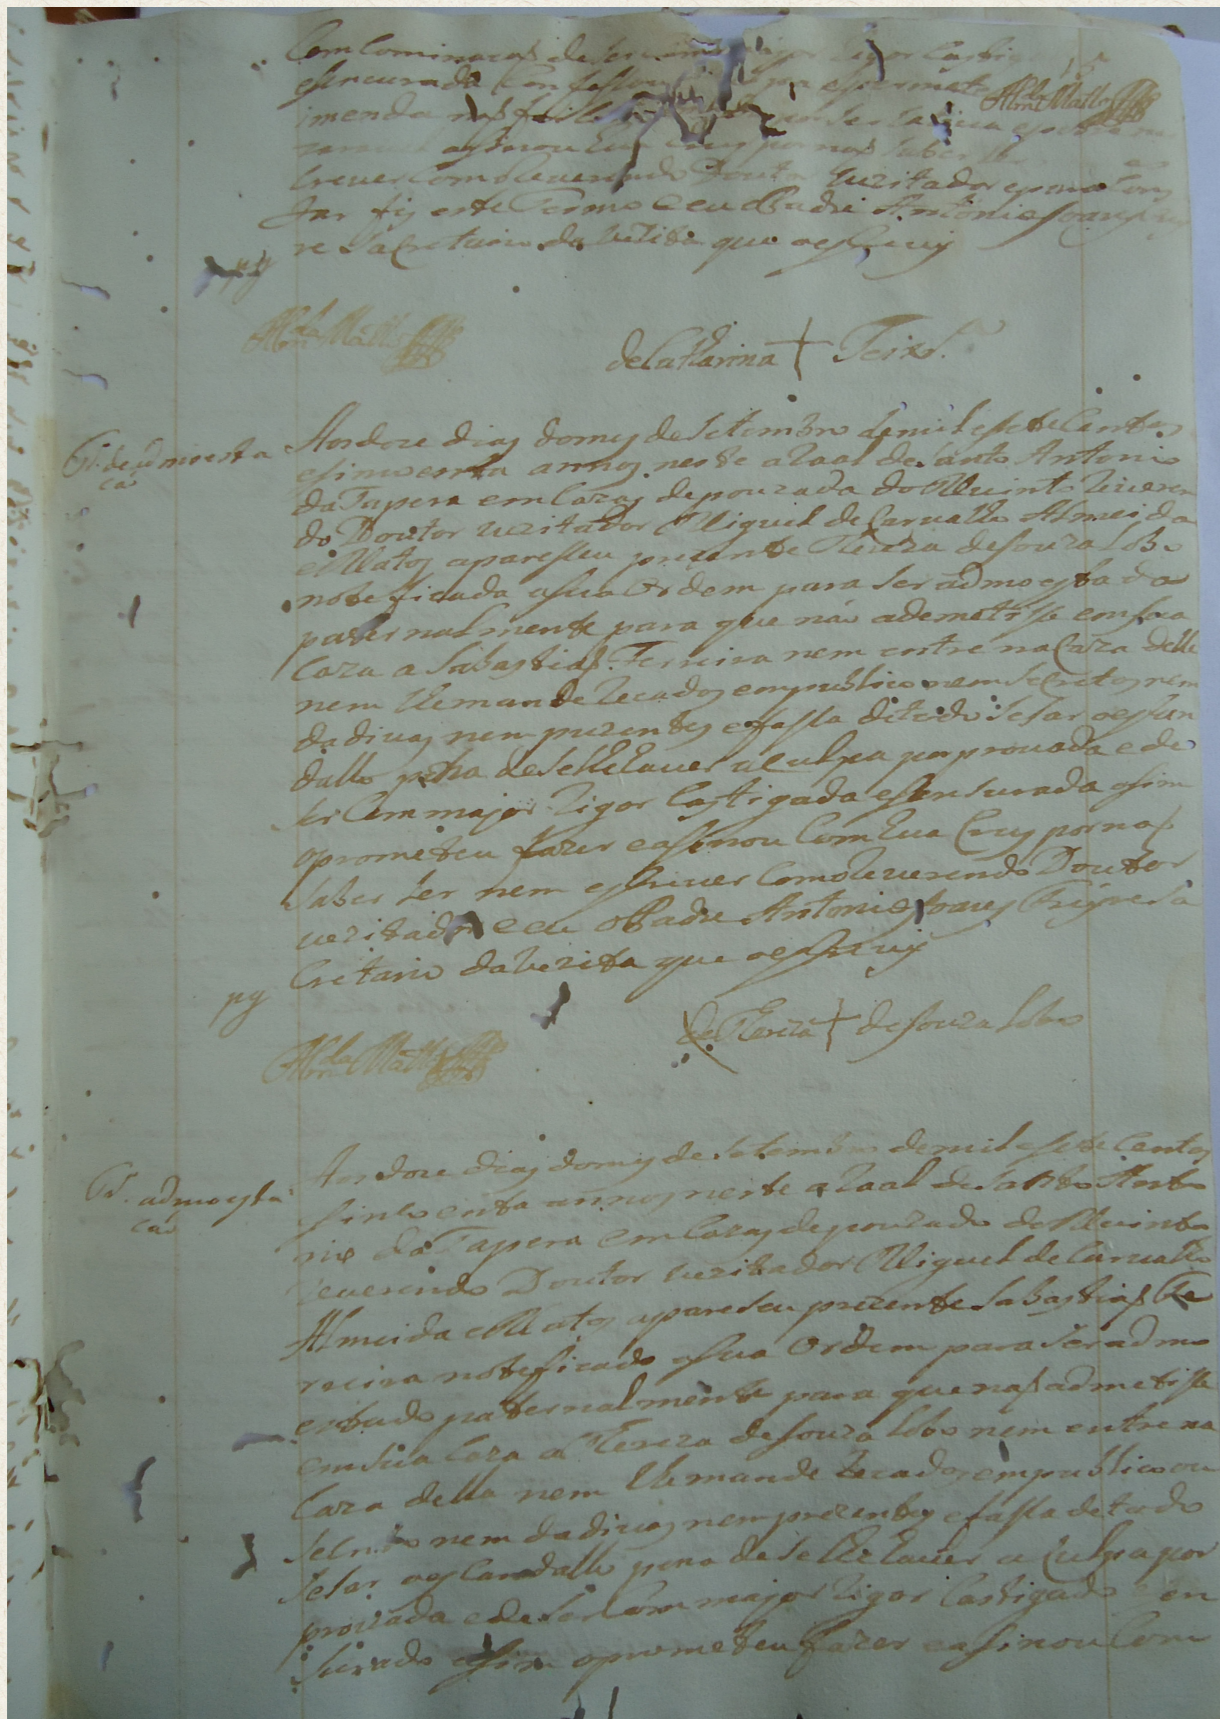 Com Cominacaõ de ser com mayor Rigor Castig
esencurada Confessou
15
Almda Mattos
imenda
asinou Cruz por naõ saber
crever Com o Reverendo Doutor vezitador e pera Cons
tar fiz este Termo e eu o Padre Antonio Soares
re Sacretario da vezita que o escrevy
pg
Almda Mattos
de Catharina + Teixra
Tr. de admoesta
caõ
Aos doze dias do mes de Setembro de mil e sete Centos
e sincoenta annos neste aRaal de Santo Antonio
da Tapera em Cazas de pouzada do Muint. Reveren
do Doutor vezitador Miguel de Carvalho Almeida
e Matos apareseu prezente Thereza de Souza Lobo
noteficada a sua Ordem para ser admoestada
paternalmente para que não ademetisse em sua
Caza a Sabastiaõ Ferreira nem entre na Caza delle
nem lhe mande Recados em publico nem Secretos nem
dadivas nem prezentes e fassa de todo sesar o escan
dallo pena de se lhe haver a Culpa por provada e de
ser Com major Rigor Castigada e sensurada asim
o prometeu fazer e asinou Com hua Cruz por naõ
saber ler nem escrever Com o Reverendo Doutor
vezitador e eu o Padre Antonio Soares Freyre Sa
Cretario da vezita que o escrevy
pg
de Thereza + de Souza Lobo
Almda Mattos
Tr. admoesta
caõ
Aos doze dias do mes de Setembro de mil e sete Centos
e sincoenta annos neste aRaal de Santo Anto
nio da Tapera em Cazas de pouzada do Muinto
Reverendo Doutor vezitador Miguel de Carvalho
Almeida e Matos apareseu prezente Sabastiaõ Fe
rreira noteficado a sua Ordem para ser admo
estado paternalmente para que naõ admetisse
em sua Caza a Thereza de Souza Lobo nem entre na
Caza della nem lhe mande Recados em publico ou
Secreto nem dadivas nem prezentes e fassa de todo
sesar o escandallo pena de se lhe haver a Culpa por
provada e de ser Com major Rigor Castigado e sen
surado asim o prometeu fazer e asinou Com